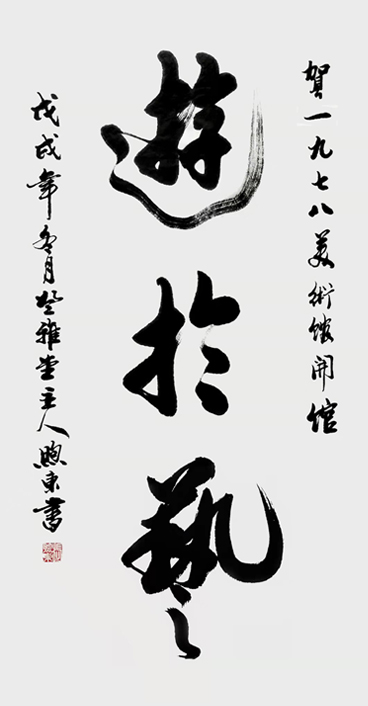 賀一九七八美術館開館
遊於藝
戊戌年冬月 雅堂主人煦東書